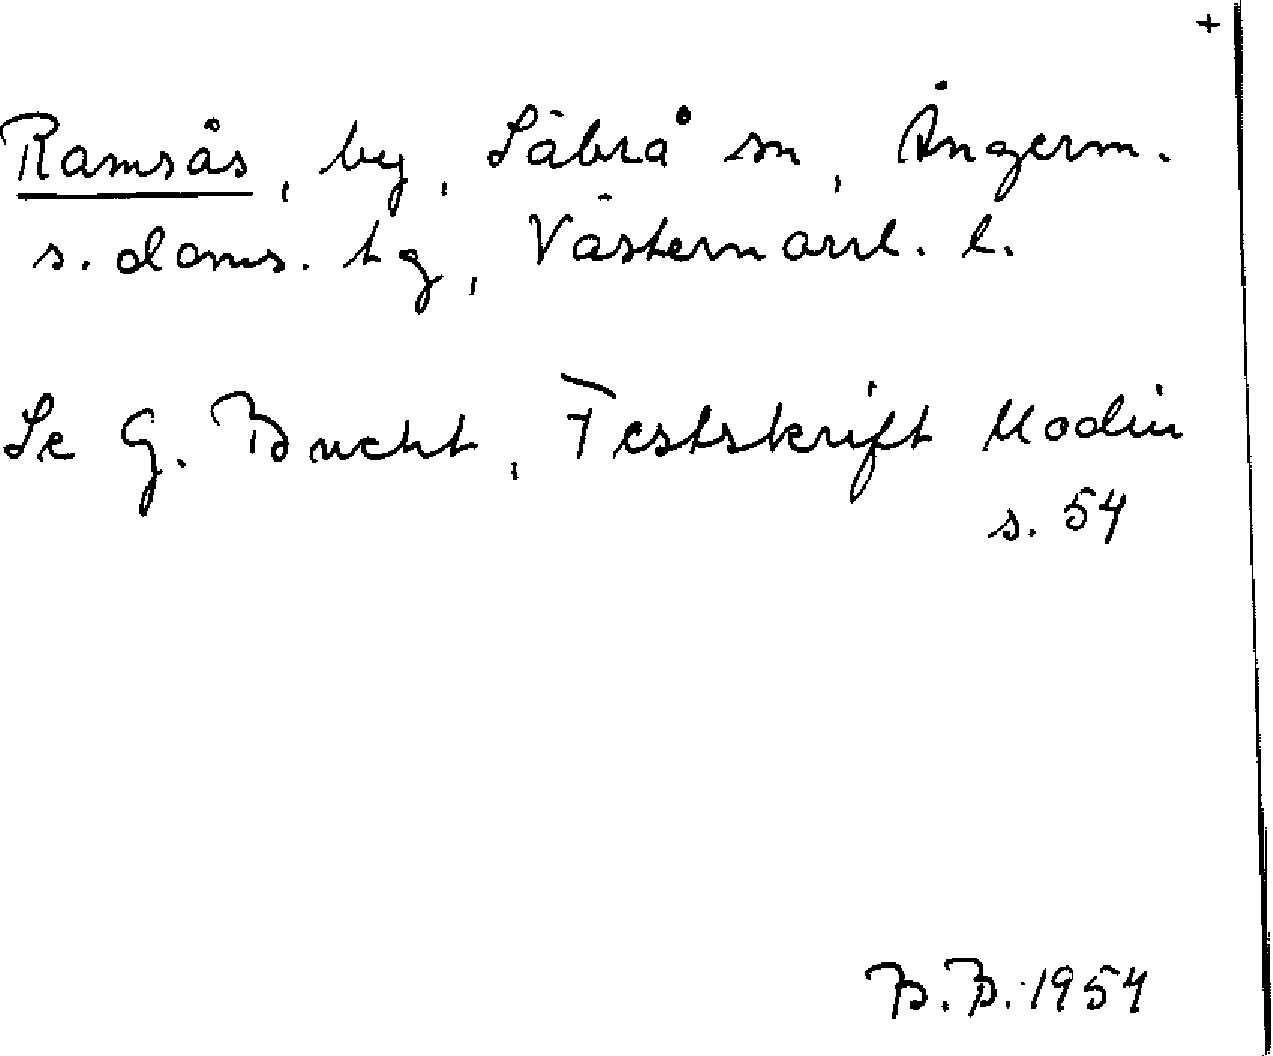 +
Ramsås, by, Säbrå sn, Ångerm.
s. doms. tg, Västernorrl. l.
Se G. Bucht, Festskrift Modin
s. 54
B.B. 1954